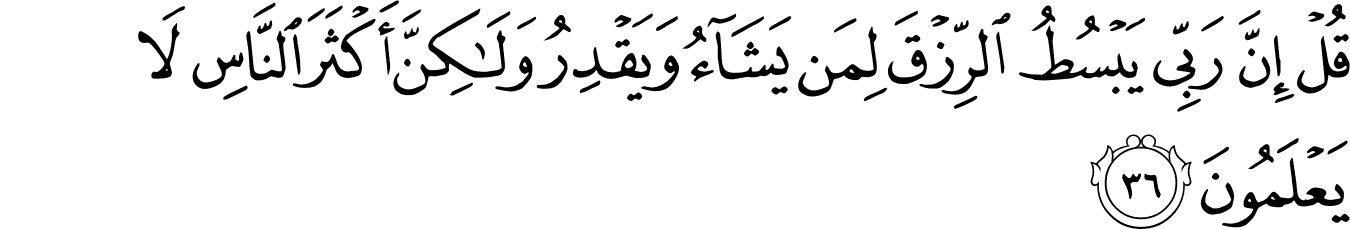 قُلْ إِنَّ رَبِّى يَبْسُطُ ٱلرِّزْقَ لِمَن يَشَآءُ وَيَقْدِرُ وَلَـٰكِنَّ أَكْثَرَ ٱلنَّاسِ لَا
يَعْلَمُونَ ٣٦